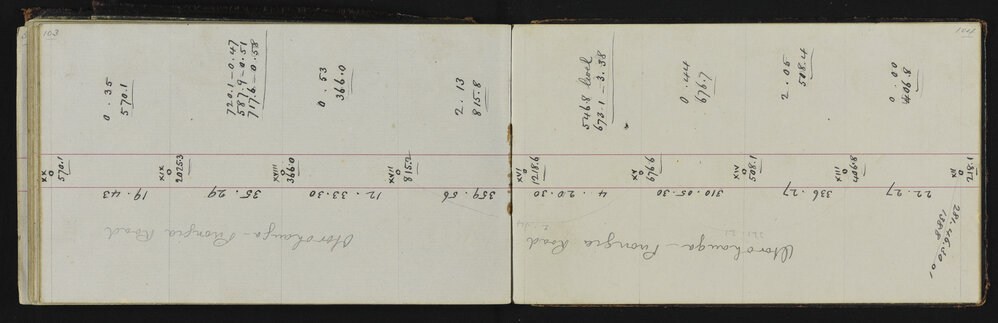 103
0.35
570.1
720.1 - 0.47
587.9 - 0.51
717.6 - 0.58
0.53
366.0
2.13
815.8
XX
0
570.1
XIX
0
2025.3
XVIII
0
366.0
XVII
0
815.2
19.43
35.29
12.33.30
359.56
Otorohanga - Pirongia Road
101
5468 level
673.1 - 3.38
0.44
676.7
2.05
508.4
0.00
406.8
XVI
0
1218.6
XV
0
676.6
XIV
0
508.1
XIII
0
406.8
XII
0
4.20.30
310.05.30
336.27
22.27
Otorohanga - Pirongia Road
281.46.30